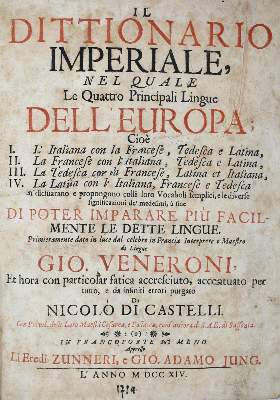 IL
DITTIONARIO
IMPERIALE,
NEL QUALE
Le Quattro Principali Lingue
DELL'EUROPA;
Cioè
I. L' Italiana con la Francese, Tedesca e Latina,
II. La Francese con l'Italiana, Tedesca e Latina,
III. La Tedesca con la Francese, Latina et Italiana,
IV. La Latina con l' Italiana, Francese e Tedesca
si dichiarano e propongono colli loro Vocaboli semplici, e le diverse
significationi de' medesimi, à fine
DI POTER IMPARARE PIÙ FACIL-
MENTE LE DETTE LINGUE.
Primieramente dato in luce dal celebre in Francia Interprete e Maestro
di Lingue
GIO. VENERONI,
Et hora con particolar fatica accresciuto, accentuato per
tutto, e da infiniti errori purgato
Da
NICOLÒ DI CASTELLI.
IN FRANCOFORTE SU'L MENO
Appresso
Li Eredi ZUNNERI, e GIO. ADAMO JUNG.
L' ANNO M DCC XIV.
1714